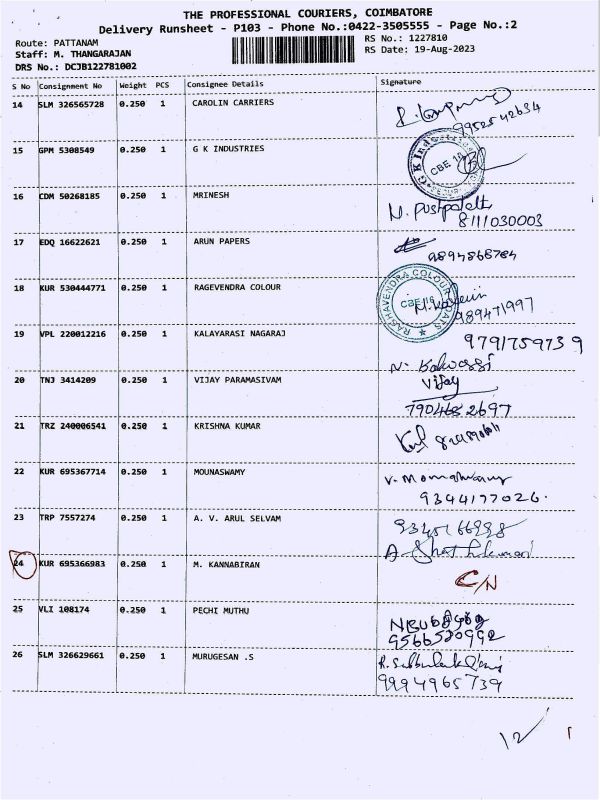 THE PROFESSIONAL COURIERS, COIMBATORE
Delivery Runsheet - P103 - Phone No.:0422-3505555 - Page No.:2
Route: PATTANAM RS No.: 1227810
Staff: M. THANGARAJAN RS Date: 19-Aug-2023
DRS No.: DCJB122781002
S No Consignment No Weight PCS Consignee Details Signature
14 SLM 326565728 0.250 1 CAROLIN CARRIERS
9952542634
15 GPM 5308549 0.250 1 G K INDUSTRIES
CBE 16
16 CDM 50268185 0.250 1 MRINESH
8111030003
17 EDQ 16622621 0.250 1 ARUN PAPERS
9894868784
18 KUR 530444771 0.250 1 RAGEVENDRA COLOUR
RAGHAVENDRA COLOUR
CBE 16
989471997
19 VPL 220012216 0.250 1 KALAYARASI NAGARAJ
9791759739
20 TNJ 3414209 0.250 1 VIJAY PARAMASIVAM
Vijay
7904682697
21 TRZ 240006541 0.250 1 KRISHNA KUMAR
22 KUR 695367714 0.250 1 MOUNASWAMY
9344177026.
23 TRP 7557274 0.250 1 A. V. ARUL SELVAM
24 KUR 695366983 0.250 1 M. KANNABIRAN
C/N
25 VLI 108174 0.250 1 PECHI MUTHU
9566520992
26 SLM 326629661 0.250 1 MURUGESAN .S
9994965739
12